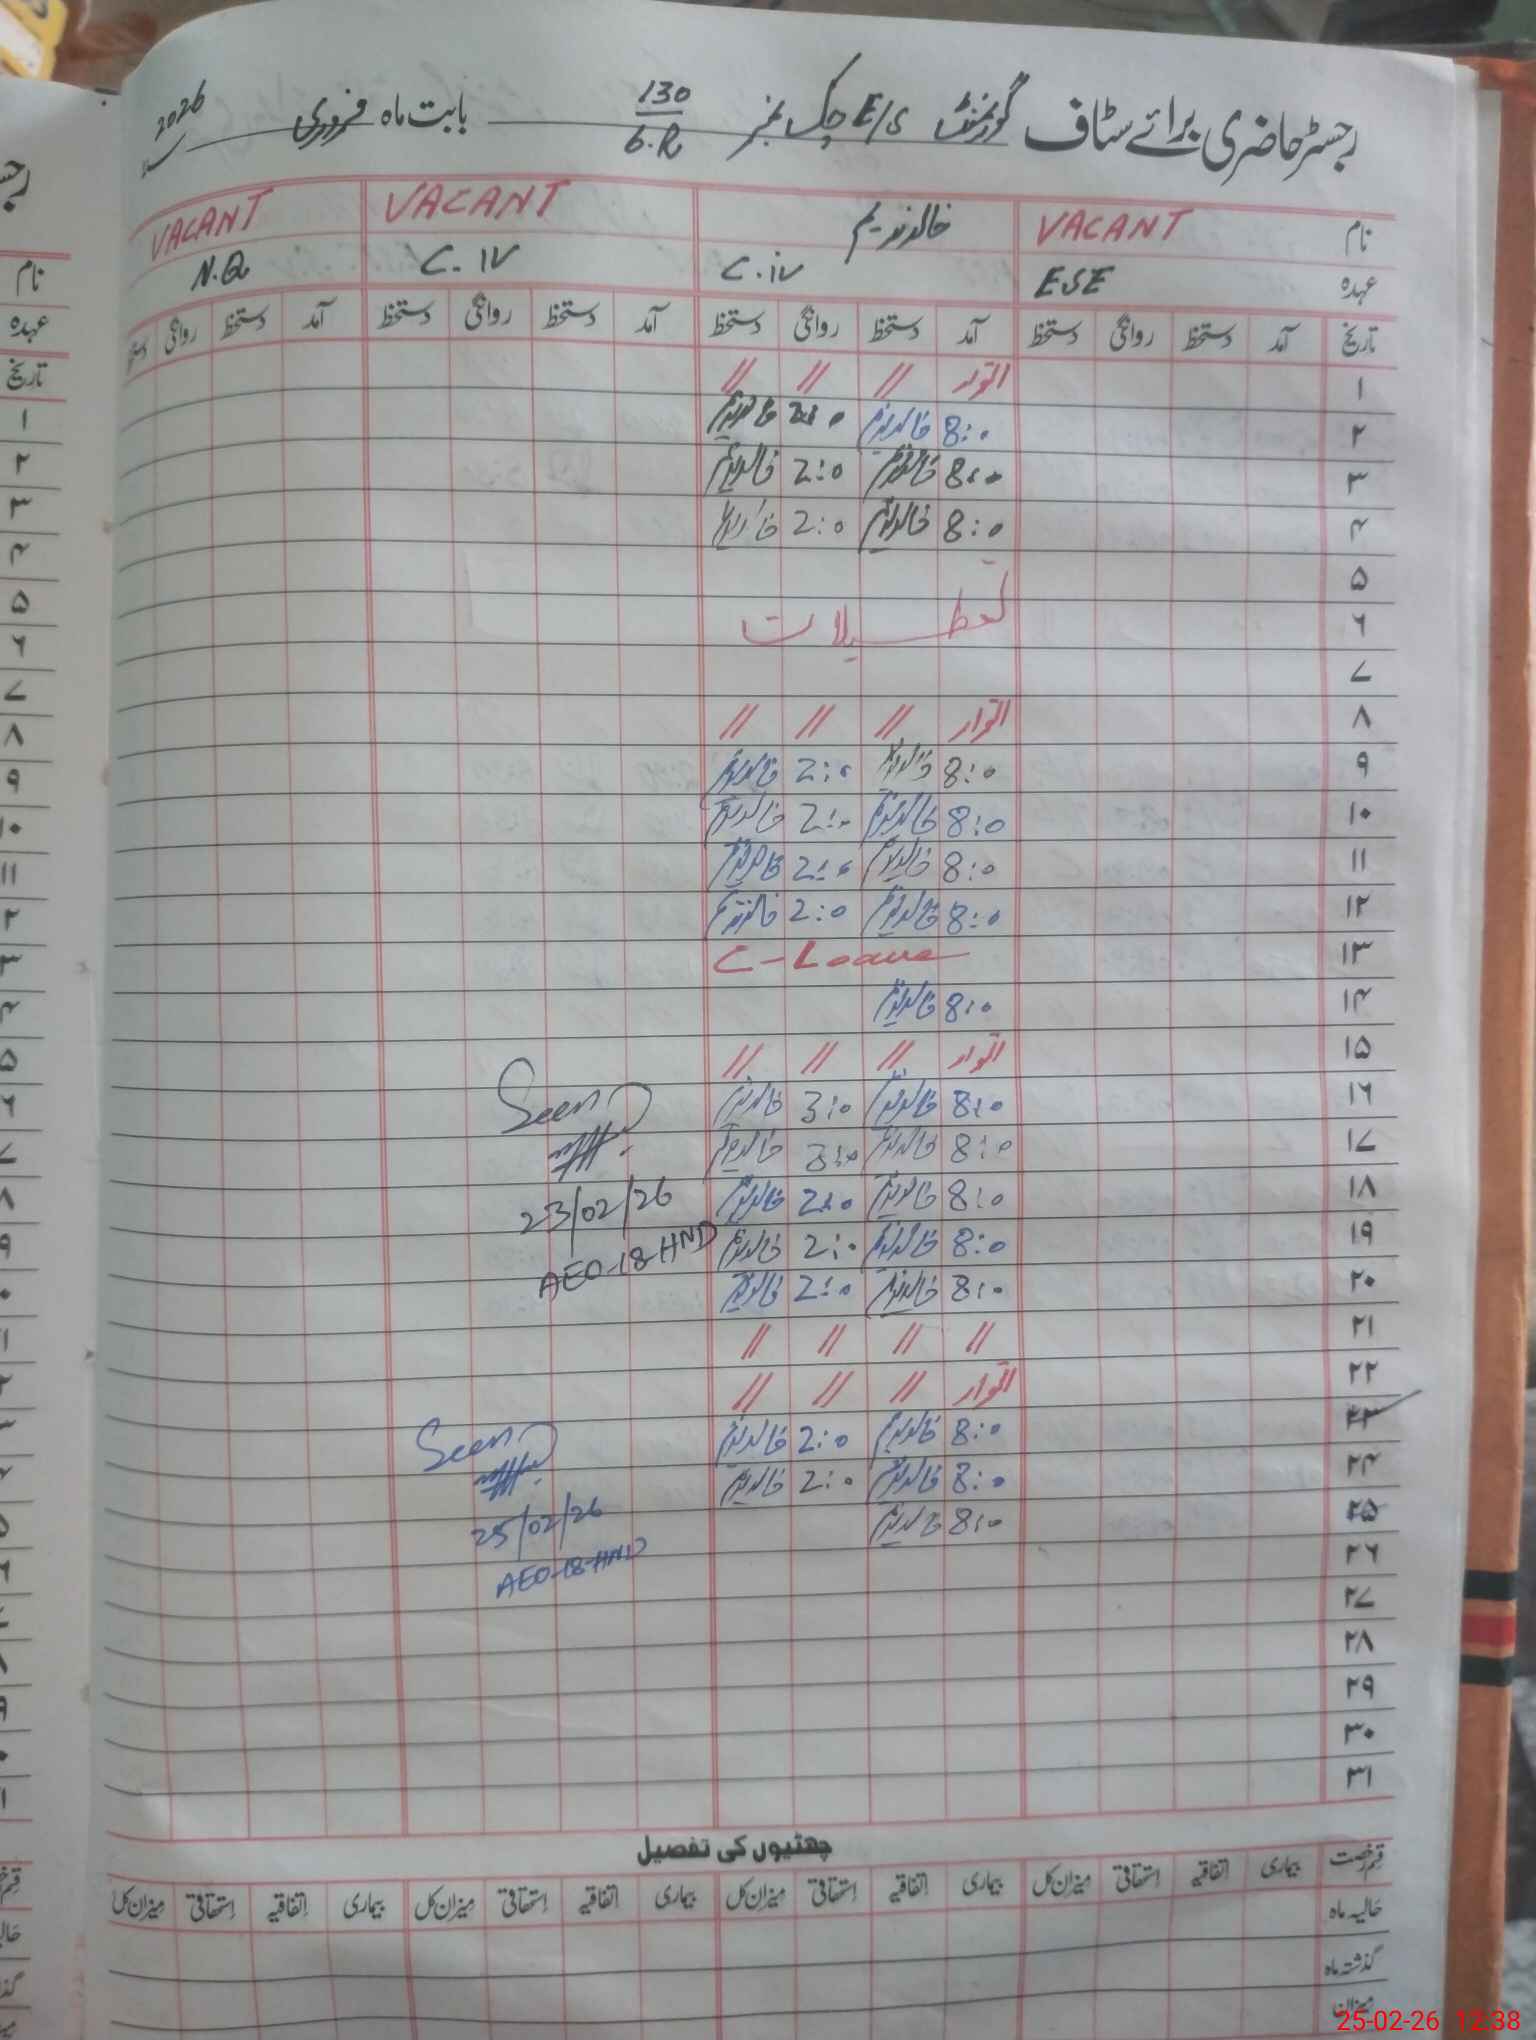 رجسٹر حاضری برائے سٹاف گورنمنٹ E/S چک نمبر 130/6.R بابت ماہ فروری 2026
نام VACANT خالد ندیم VACANT VACANT
عہدہ ESE C.iv C.IV N.Q
تاریخ آمد دستخط روانگی دستخط آمد دستخط روانگی دستخط آمد دستخط روانگی دستخط آمد دستخط روانگی دستخط
۱ اتوار // // //
۲ 8:0 خالد ندیم 2:0 خالد ندیم
۳ 8:0 خالد ندیم 2:0 خالد ندیم
۴ 8:0 خالد ندیم 2:0 خالد ندیم
۵
۶ تعطیلات
۷
۸ اتوار // // //
۹ 8:0 خالد ندیم 2:0 خالد ندیم
۱۰ 8:0 خالد ندیم 2:0 خالد ندیم
۱۱ 8:0 خالد ندیم 2:0 خالد ندیم
۱۲ 8:0 خالد ندیم 2:0 خالد ندیم
۱۳ C-Leave
۱۴ 8:0 خالد ندیم
۱۵ اتوار // // //
۱۶ 8:0 خالد ندیم 3:0 خالد ندیم
۱۷ 8:0 خالد ندیم 3:0 خالد ندیم
۱۸ 8:0 خالد ندیم 2:0 خالد ندیم
۱۹ 8:0 خالد ندیم 2:0 خالد ندیم
۲۰ 8:0 خالد ندیم 2:0 خالد ندیم
۲۱ // // // //
۲۲ اتوار // // //
۲۳ 8:0 خالد ندیم 2:0 خالد ندیم
۲۴ 8:0 خالد ندیم 2:0 خالد ندیم
۲۵ 8:0 خالد ندیم
۲۶
۲۷
۲۸
۲۹
۳۰
۳۱
Seen
23/02/26
AEO-18-HND
Seen
25/02/26
AEO-18-HND
چھٹیوں کی تفصیل
قسم رخصت بیماری اتفاقیہ استحقاقی میزان کل بیماری اتفاقیہ استحقاقی میزان کل بیماری اتفاقیہ استحقاقی میزان کل بیماری اتفاقیہ استحقاقی میزان کل
حالیہ ماہ
گذشتہ ماہ
میزان
25-02-26 12:38